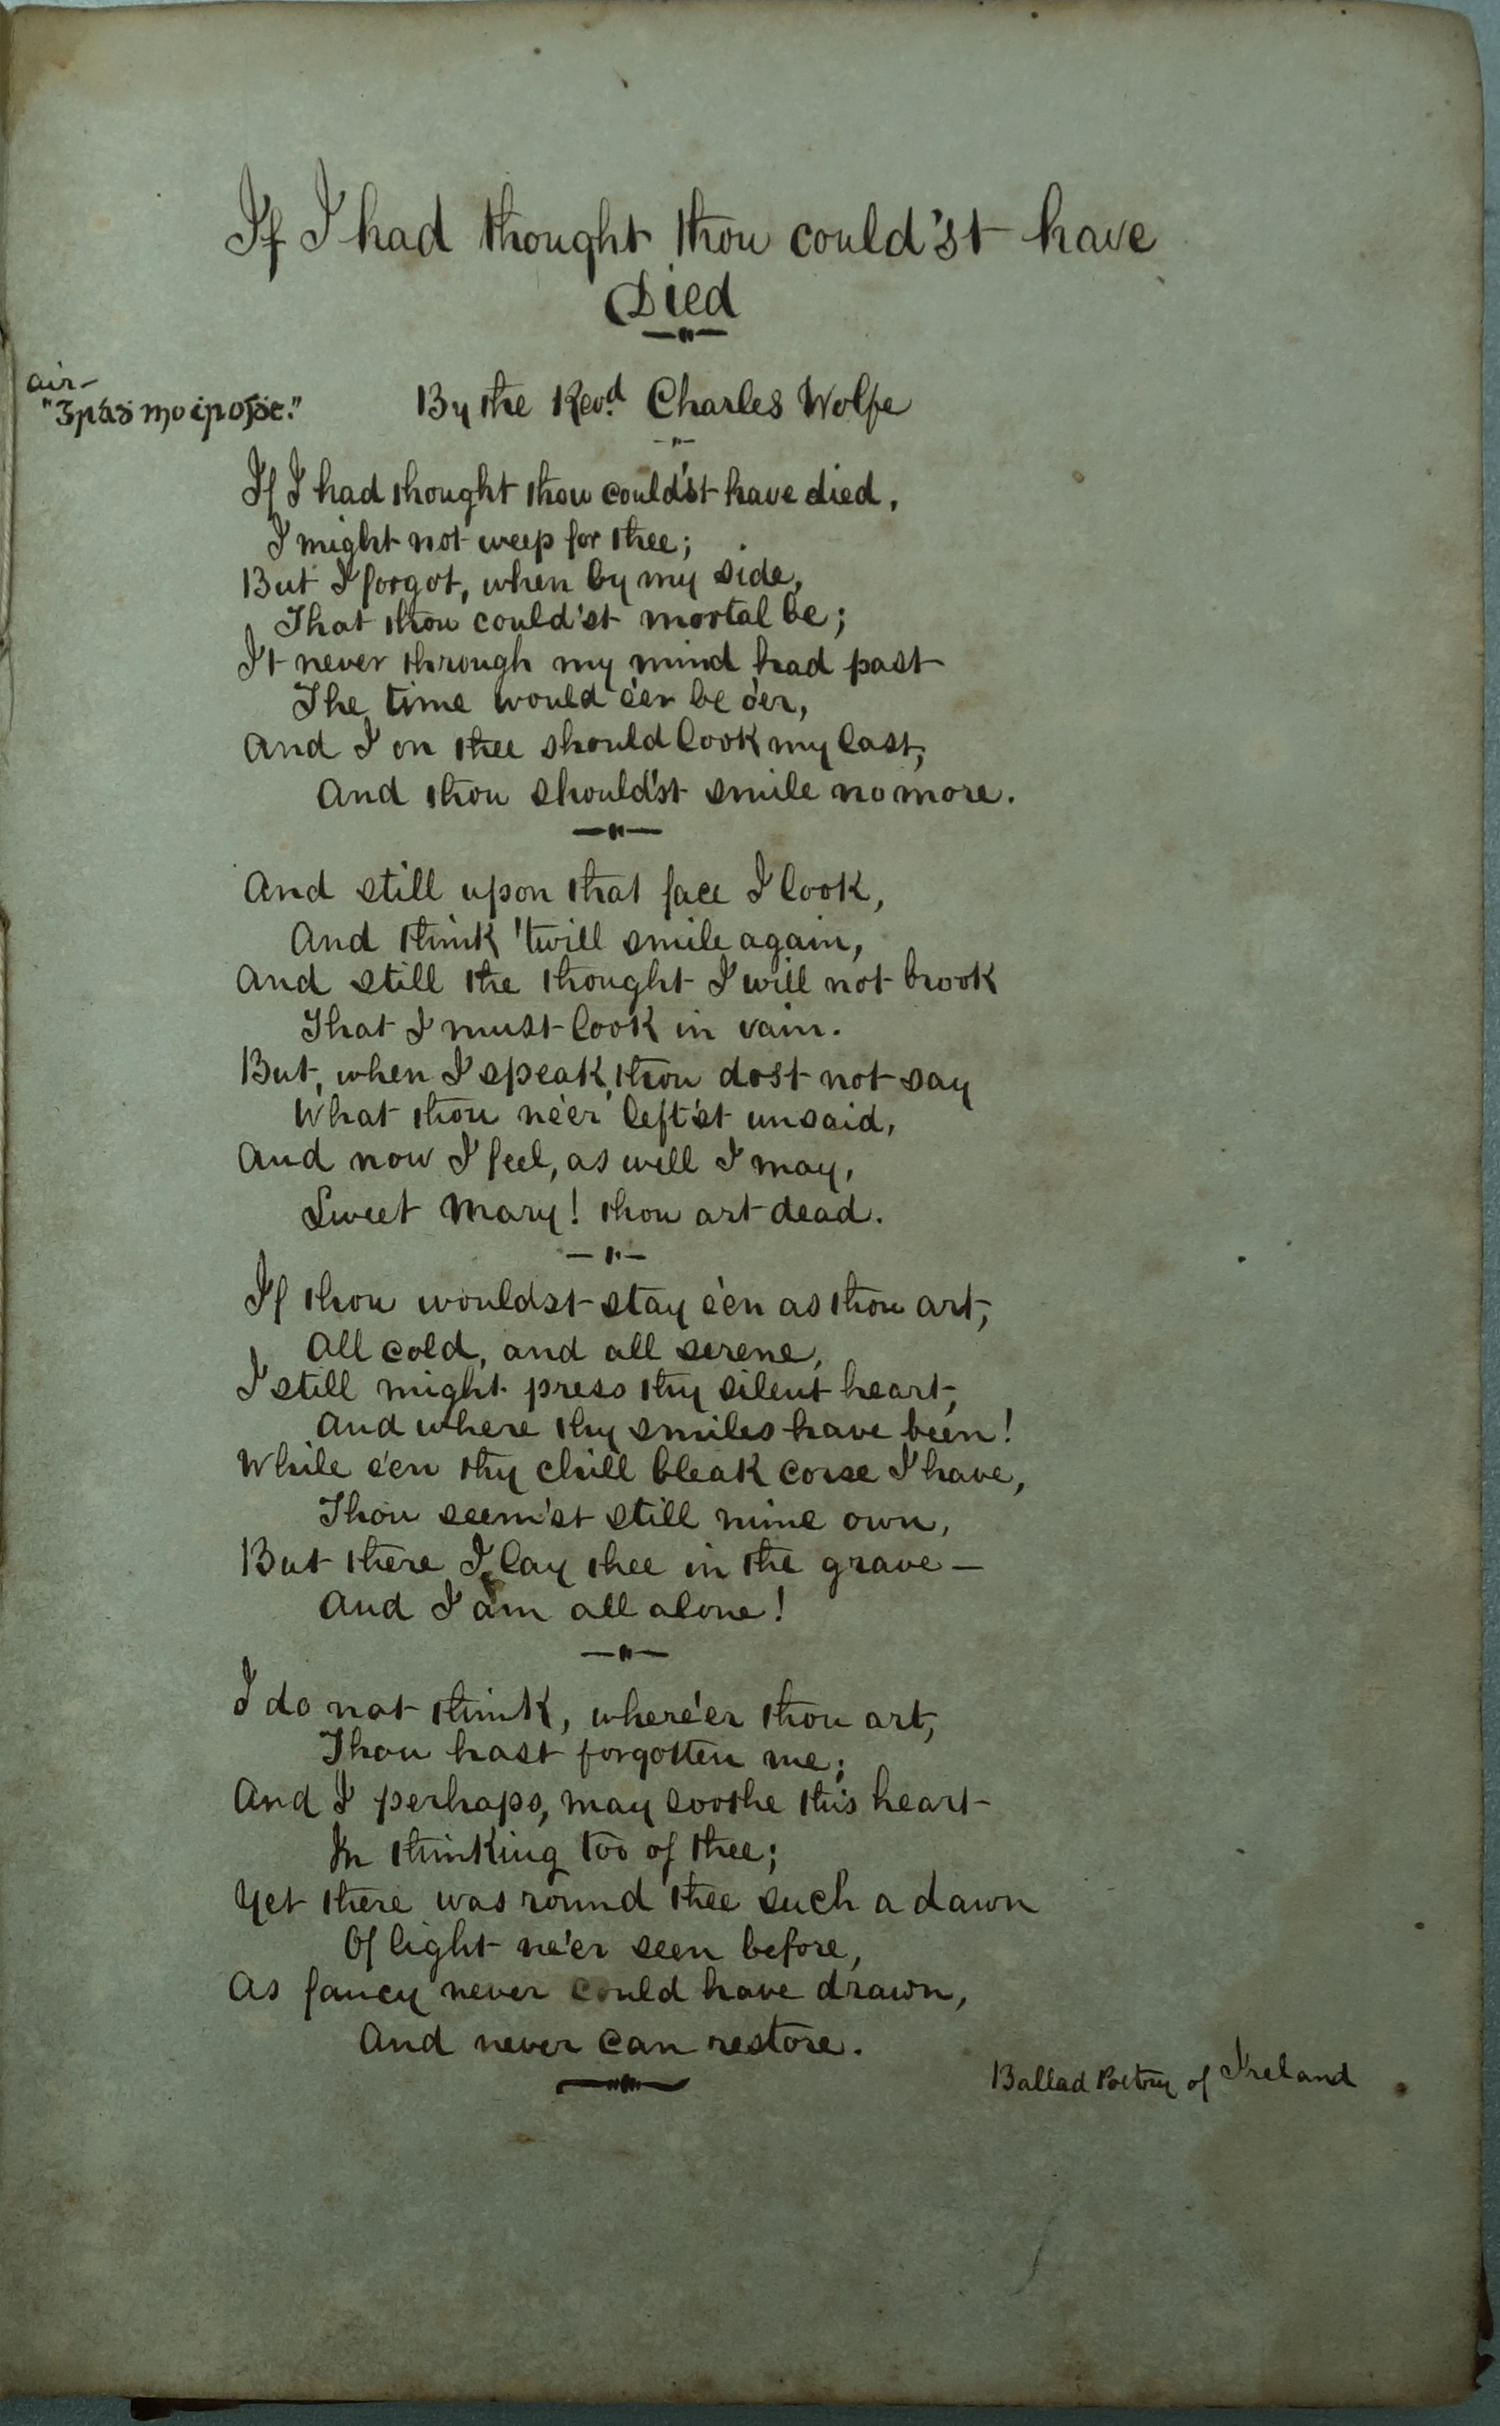 If I had thought thou could'st have
Died
air-
"Ʒráḋ mo ċroiḋe."
By the Revd. Charles Wolfe
If I had thought thou could'st have died,
I might not weep for thee;
But I forgot, when by my side,
That thou could'st mortal be;
It never through my mind had past
The time would e'er be o'er,
And I on thee should look my last,
And thou should'st smile no more.
And still upon that face I look,
And think 'twill smile again,
And still the thought I will not brook
That I must look in vain.
But, when I speak, thou dost not say
What thou ne'er left'st unsaid,
And now I feel, as well I may,
Sweet Mary! thou art dead.
If thou wouldst stay e'en as thou art,
All cold, and all serene,
I still might press thy silent heart,
And where thy smiles have been!
While e'en thy chill bleak corse I have,
Thou seem'st still mine own,
But there I lay thee in the grave —
And I am all alone!
I do not think, where'er thou art,
Thou hast forgotten me;
And I perhaps, may soothe this heart
In thinking too of thee;
Yet there was round thee such a dawn
Of light ne'er seen before,
As fancy never could have drawn,
And never can restore.
Ballad Poetry of Ireland